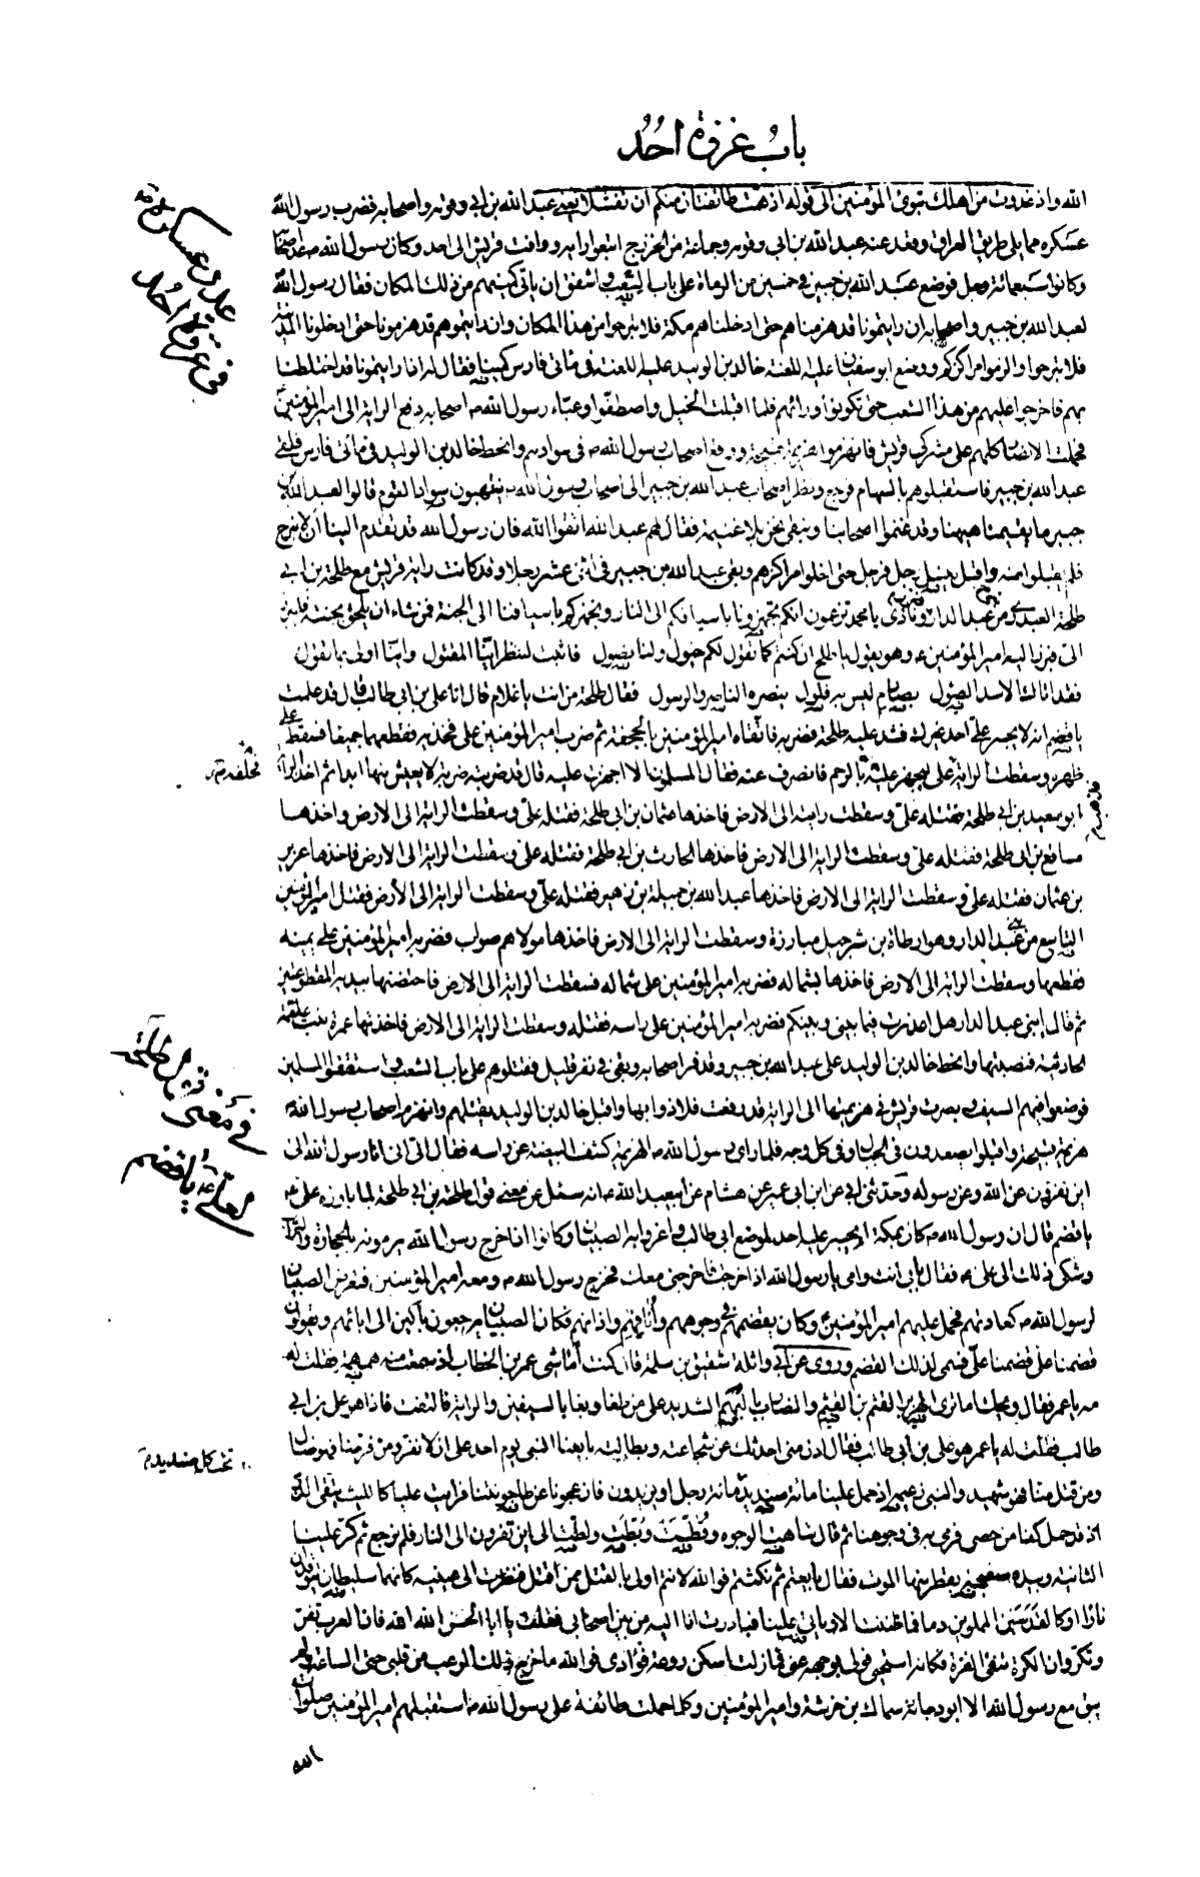 باب غزوة احُد
الله واذ غدوت من اهلك تبوئ المؤمنين الى قوله اذ همت طائفتان منكم ان تفشلا يعنى عبد الله بن ابي وقومه واصحابه فضرب رسول الله
عسكره مما يلى طريق العراق وقعد عنه عبد الله بن ابى وقومه وجماعة من الخزرج اتبعوا رايه ووافت قريش الى احد وكان رسول الله
وكانوا سبعمائة رجل فوضع عبد الله بن جبير فى خمسين من الرماة على باب الشعب واشفق ان ياتى كمينهم من ذلك المكان فقال رسول الله
لعبد الله بن جبير واصحابه ان رايتمونا قد هزمناهم حتى ادخلناهم مكة فلا تبرحوا من هذا المكان وان رايتموهم قد هزمونا حتى ادخلونا المدينة
فلا تبرحوا والزموا مراكزكم ووضع ابو سفيان عليه اللعنة خالد بن الوليد عليه اللعنة فى مائتى فارس كمينا فقال له اذا رايتمونا قد اختلطنا
بهم فاخرجوا عليهم من هذا الشعب حتى تكونوا ورائهم فلما اقبلت الخيل واصطفوا وعباء رسول الله اصحابه دفع الراية الى امير المؤمنين
فحملت الانصار كلهم على مشركى قريش فانهزموا هزيمة قبيحة ووقع اصحاب رسول الله فى سوادهم وانحط خالد بن الوليد فى مائتى فارس فلقى
عبد الله بن جبير فاستقبلوهم بالسهام فرجع ونظر اصحاب عبد الله بن جبير الى اصحاب رسول الله ينتهبون سواد القوم قالوا لعبد الله بن
جبير ما يقيمنا هيهنا وقد غنموا اصحابنا ونبقى نحن بلا غنيمة فقال لهم عبد الله اتقوا الله فان رسول الله قد تقدم الينا ان لا نبرح
فلم يقبلوا منه واقبل ينسل رجل فرجل حتى اخلوا مراكزهم وبقى عبد الله بن جبير فى اثنى عشر رجلا وقد كانت راية قريش مع طلحة بن ابي
طلحة العبدرى من بنى عبد الدار ونادى يا محمد تزعمون انكم تجهزونا باسيافكم الى النار ونجهزكم باسيافنا الى الجنة فمن شاء ان يلحق بجنته فليبرز
الى فبرز اليه امير المؤمنين وهو يقول يا طلح ان كنتم كما تقول لكم خيول ولنا نصول فاثبت لننظر اينا المقتول واينا اولى بما تقول
فقد اتاك الاسد الصؤل بصارم ليس به فلول ينصره الناصر والرسول فقال طلحة من انت يا غلام قال انا على بن ابى طالب قال قد علمت
يا قضم انه لا يجسر على احد غيرك فشد عليه طلحة فضربه فاتقاه امير المؤمنين بالحجفة ثم ضرب امير المؤمنين على فخذيه فقطعهما جميعا فسقط على
ظهره وسقطت الراية فذهب على ليجهز عليه فحلفه بالرحم فانصرف عنه فقال المسلمون الا اجهزت عليه قال قد ضربته ضربة لا يعيش منها ابدا ثم اخذ الراية
ابو سعيد بن ابي طلحة فقتله على وسقطت رايته الى الارض فاخذها عثمان بن ابى طلحة فقتله على وسقطت الراية الى الارض واخذها
مسافع بن ابى طلحة فقتله على وسقطت الراية الى الارض فاخذها الحارث بن ابي طلحة فقتله على وسقطت الراية الى الارض فاخذها عزيز
بن عثمان فقتله على وسقطت الراية الى الارض فاخذها عبد الله بن جميلة بن زهير فقتله على وسقطت الراية الى الأرض فقتل امير المؤمنين
التاسع من بنى عبد الدار وهو ارطاة بن شرحبيل مبارزة وسقطت الراية الى الارض فاخذها مولاهم صواب فضربه امير المؤمنين على يمينه
فقطعها وسقطت الراية الى الارض فاخذها بشماله فضربه امير المؤمنين على شماله فسقطت الراية الى الارض فاحتضنها بيديه المقطوعتين
ثم قال يا بنى عبد الدار هل اعذرت فيما بينى وبينكم فضربه امير المؤمنين على راسه فقتله وسقطت الراية الى الارض فاخذتها عمرة بنت علقمة
الحارثية فنصبتها وانحط خالد بن الوليد على عبد الله بن جبير وقد فر اصحابه وبقى فى نفر قليل فقتلوهم على باب الشعب واستقفوا المسلمين
فوضعوا فيهم السيف وبصرت قريش فى هزيمتها الى الراية قد رفعت فلاذوا بها واقبل خالد بن الوليد يقتلهم وانهزم اصحاب رسول الله
هزيمة قبيحة واقبلوا يصعدون فى الجبال وفى كل وجه فلما راى رسول الله الهزيمة كشف البيضة عن راسه فقال الى انى انا رسول الله الى
اين تفرون عن الله وعن رسوله وحدثنى ابي عن ابن ابى عمير عن هشام عن ابيعبد الله انه سئل عن معنى قول طلحة بن ابى طلحة لما بارزه على
يا قضم قال ان رسول الله كان بمكة لم يجسر عليه احد لموضع ابى طالب واغروا به الصبيان وكانوا اذا خرج رسول الله يرمونه بالحجارة والتراب
وشكى ذلك الى على فقال بابى انت وامى يا رسول الله اذا خرجت فاخرجنى معك فخرج رسول الله ومعه امير المؤمنين فتعرض الصبيان
لرسول الله كعادتهم فحمل عليهم امير المؤمنين وكان يقضمهم فى وجوههم وآنافهم واذانهم فكان الصبيان يرجعون باكين الى ابائهم ويقولون
قضمنا على قضمنا على فسمى لذلك القضم وروى عن ابي واثلة شقيق بن سلمة قال كنت اماشى عمر بن الخطاب اذ سمعت منه همهمة فقلت له
مه يا عمر فقال ويحك اما ترى الهزبر القثم بن القثم والضارب بالبهم الشديد على من طغا وبغا بالسيفين والراية فالتفت فاذا هو على بن ابي
طالب فقلت له يا عمر هو على بن ابى طالب فقال ادن منى احدثك عن شجاعته وبطالته بايعنا النبى يوم احد على ان لا نفر ومن فر منا فهو ضال
ومن قتل منا فهو شهيد والنبى زعيمه اذ حمل علينا مائة صنديد تحت كل صنديد مائة رجل او يزيدون فازعجونا عن طاحونتنا فرايت عليا كالليث يتقى الذر
اذ قد حمل كفا من حصى فرمى به فى وجوهنا ثم قال شاهت الوجوه وقطت وبطت ولطت الى اين تفرون الى النار فلم نرجع ثم كر علينا
الثانية وبيده صفيحة يقطر منها الموت فقال بايعتم ثم نكثتم فوالله لانتم اولى بالقتل ممن اقتل فنظرت الى عينيه كانهما سليطان يتوقدان
نارا او كالقدحين المملوين دما فما ظننت الا وياتى علينا فبادرت انا اليه من بين اصحابى فقلت يا ابا الحسن الله الله فان العرب تفر
وتكر وان الكرة تنفى الفرة فكانه استحيى فولى بوجهه عنى فما زلت اسكن روعة فؤادى فوالله ما خرج ذلك الرعب من قلبى حتى الساعة ولم
يبق مع رسول الله الا ابو دجانة سماك بن خرشة وامير المؤمنين وكلما حملت طائفة على رسول الله استقبلهم امير المؤمنين صلوات
الله
عدى عسكر
فى غزوة احُد
فحلفه
فذهب
فى معنى قول طلحة
لعلى يا قضم
تحت كل صنديد